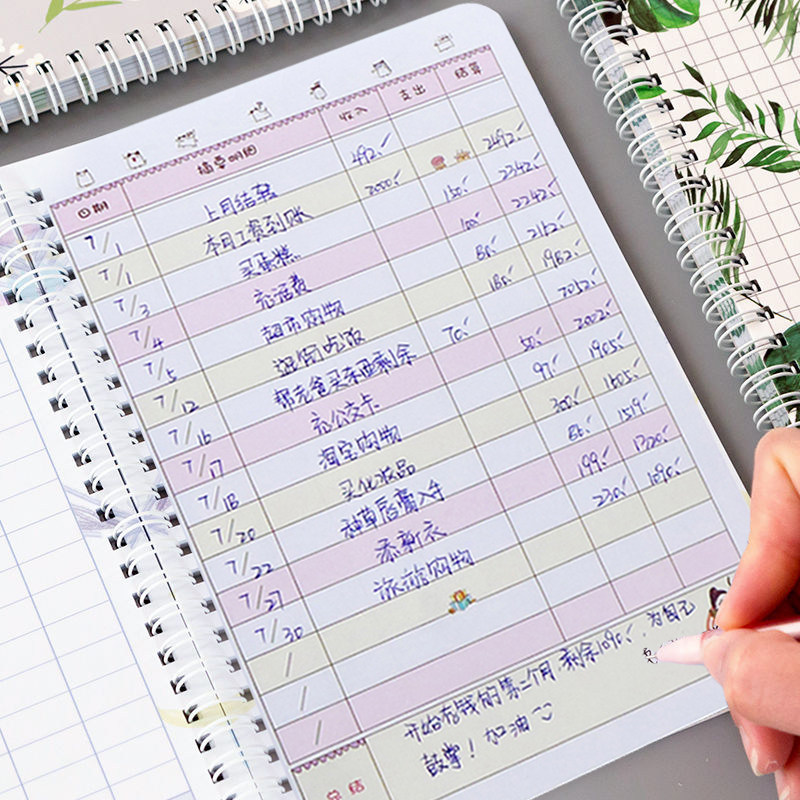 日期 摘要明细 收入 支出 结算
7/1 上月结转 492.
7/1 本月工资到账 2000. 2492.
7/3 买蛋糕 150. 2342.
7/4 充话费 100. 2242.
7/5 超市购物 80. 2162.
7/12 逛街吃饭 180. 1982.
7/16 帮宿舍买东西剩余 70. 2052.
7/17 充公交卡 50. 2002.
7/18 淘宝购物 97. 1905.
7/20 买化妆品 300. 1605.
7/22 种草唇膏入手 86. 1519.
7/27 添新衣 199. 1320.
7/30 旅游购物 230. 1090.
/
/
/
总结 开始存钱的第二个月,剩余1090.为自己
鼓掌!加油